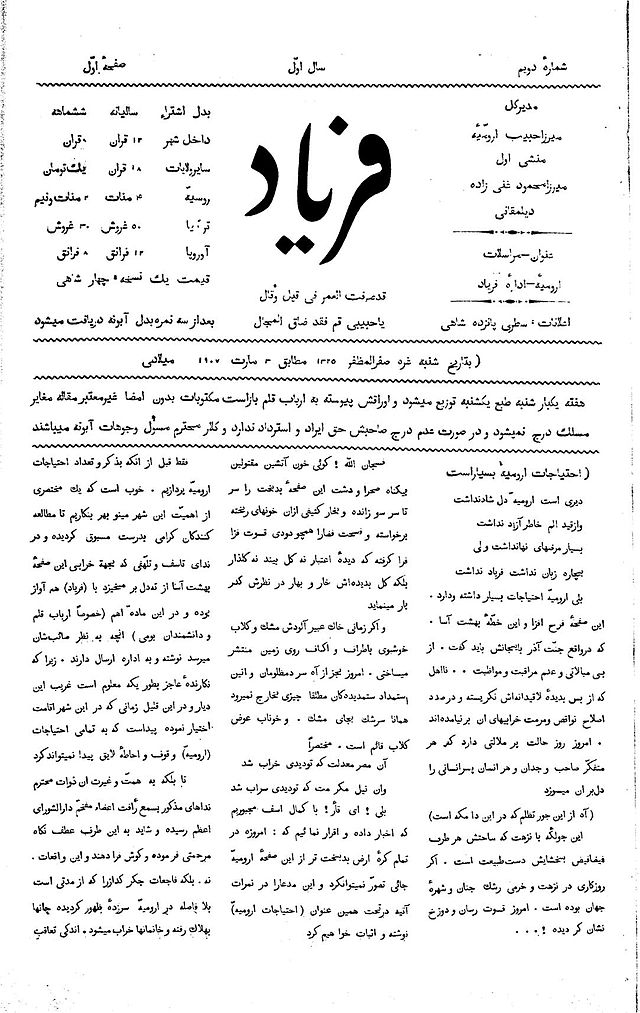 شمارهٔ دویم
سال اوّل
صفحهٔ اوّل
مدیر کل
میرزا حبیب ارومیهٔ
منشی اول
میرزا محمود غنی زاده
دیلمقانی
عنوان-مراسلات
ارومیهٔ-ادارهٔ فریاد
اعلانات : سطری پانزده شاهی
فریاد
قد صرفت العمر فی قیل وقال
یا حبیبی قم فقد ضاق المجال
بدل اشتراک سالیانه ششماهه
داخل شهر ۱۲ قران ۸ قران
سایر ولایات ۱۸ قران یك تومان
روسیهٔ ۴ منات ۲ منات و نیم
ترکیا ۵۰ غروش ۳۰ غروش
آوروپا ۱۲ فرانق ۸ فرانق
قیمت یك نسخه چهار شاهی
بعد از سه نمره بدل آبونه دریافت میشود
( بتاریخ شنبه غره صفرالمظفر ۱۳۲۵ مطابق ۳ مارت ۱۹۰۷ میلادی
هفته یکبار شنبه طبع یکشنبه توزیع میشود و اوراقش پیوسته به ارباب قلم بازاست مکتوبات بدون امضا غیرمعتبر مقاله مغایر
مسلك درج نمیشود و در صورت عدم درج صاحبش حق ایراد و استرداد ندارد و کلار محترم مسؤل وجوهات آبونه میباشند
( احتیاجات ارومیهٔ بسیاراست
دیری است ارومیهٔ دل شادنداشت
وازقید الم خاطر آزاد نداشت
بسیار مرضهای نهانداشت ولی
بیچاره زبان نداشت فریاد نداشت
بلی ارومیهٔ احتیاجات بسیار داشته ودارد .
این صفحهٔ فرح افزا و این خطهٔ بهشت آسا .
که درواقع جنّت آذربایجانش باید گفت . از
بی مبالاتی و عدم مراقبت و مواظبت . . نااهل
که از بس بدیدهٔ لاقیدانه‌اش نگریسته و درصدد
اصلاح نواقص ومرمت خرابیهای ان برنیامده‌اند
. امروز روز حالت پر ملالتی دارد که هر
متفکّر صاحب وجدان و هر انسان پسرانسانی را
دل بر ان میسوزد
(آه از این جور تظلم که در این دامکه است)
این جولگهٔ با نزهت که ساحتش هر طرف
فیضافیض بخشایش دست طبیعت است . اکر
روزکاری در نزهت و خرمی رشك جنان و شهرهٔ
جهان بوده است . امروز قسوت رسان و دوزخ
نشان کردیده ! . . .
سبحان الله ! کوئی خون آتشین مقتولین
بیگناه صحرا و دشت این صفحهٔ بدبخت را سر
تا سر سوزانده و بخار کثیفی ازان خونهای ریخته
برخواسته و فسحت فضارا همچو دودی قسوت فزا
فرا گرفته که دیدهٔ اعتبار نه کل بیند نه کلذار
بلکه کل بدیده‌اش خار و بهار در نظرش کدر
بار مینماید
و اکر زمانی خاك عبیر آلودش مشك و کلاب
خوشبوی باطراف و اکناف روی زمین منتشر
میساختی . امروز بجز از آه سرد مظلومان و انین
استمداد ستمدیده‌کان مطلقا چیزی بخارج نمیرود
همانا سرشك بجای مشك . و خوناب عوض
کلاب قائم است . مختصراً
آن مصر معدلت که تودیدی خراب شد
وان نیل مکرمت که تودیدی سراب شد
بلی ! ای قارٔ! با کمال اسف مجبوریم
که اخبار داده و اقرار نمائیم که : امروزه در
تمام کرهٔ ارض بدبخت تر از این صفحهٔ ارومیهٔ
جائی تصوّر نمیتوانکرد و این مدعارا در نمرات
آتیه در تحت همین عنوان (احتیاجات ارومیهٔ)
نوشته و اثبات خواهیم کرد
فقط قبل از انکه بذکر و تعداد احتیاجات
ارومیهٔ پردازیم . خوب است که یك مختصری
از اهمیّت این شهر مینو بهر بنکاریم تا مطالعه
کنندکان کرامی بدرست مسبوق کردیده و در
ندای تاسف و تلهّفی که بجههٔ خرابی این صفحهٔ
بهشت آسا از ته دل بر میخیزد با (فریاد) هم آواز
بوده و در این مادهٔ اهم (خصوصاً ارباب قلم
و دانشمندان بومی) آنچه به نظر صائب‌شان
میرسد نوشته و به اداره ارسال دارند . زیرا که
نکارندهٔ عاجز بطور یکه معلوم است غریب این
دیار و در این قلیل زمانی که در این شهر اقامت
اختیار نموده پیداست که به تمامی احتیاجات
(ارومیهٔ) وقوف و احاطهٔ لایق پیدا نمیتواندکرد
تا بلکه به همّت و غیرت ان ذوات محترم
نداهای مذکور بسمع رأفت اعضاء مفخّم دارالشورای
اعظم رسیده و شاید به این طرف عطف نکاه
مرحمتی فرموده و کوش فرا دهند و این واقعات .
نه . بلکه فاجعات جکر کدازرا که از مدتی است
بلا فاصله در ارومیهٔ سرزدهٔ ظهور کردیده جانها
بهلاك رفته و خانمانها خراب میشود . اندکی تعاقب